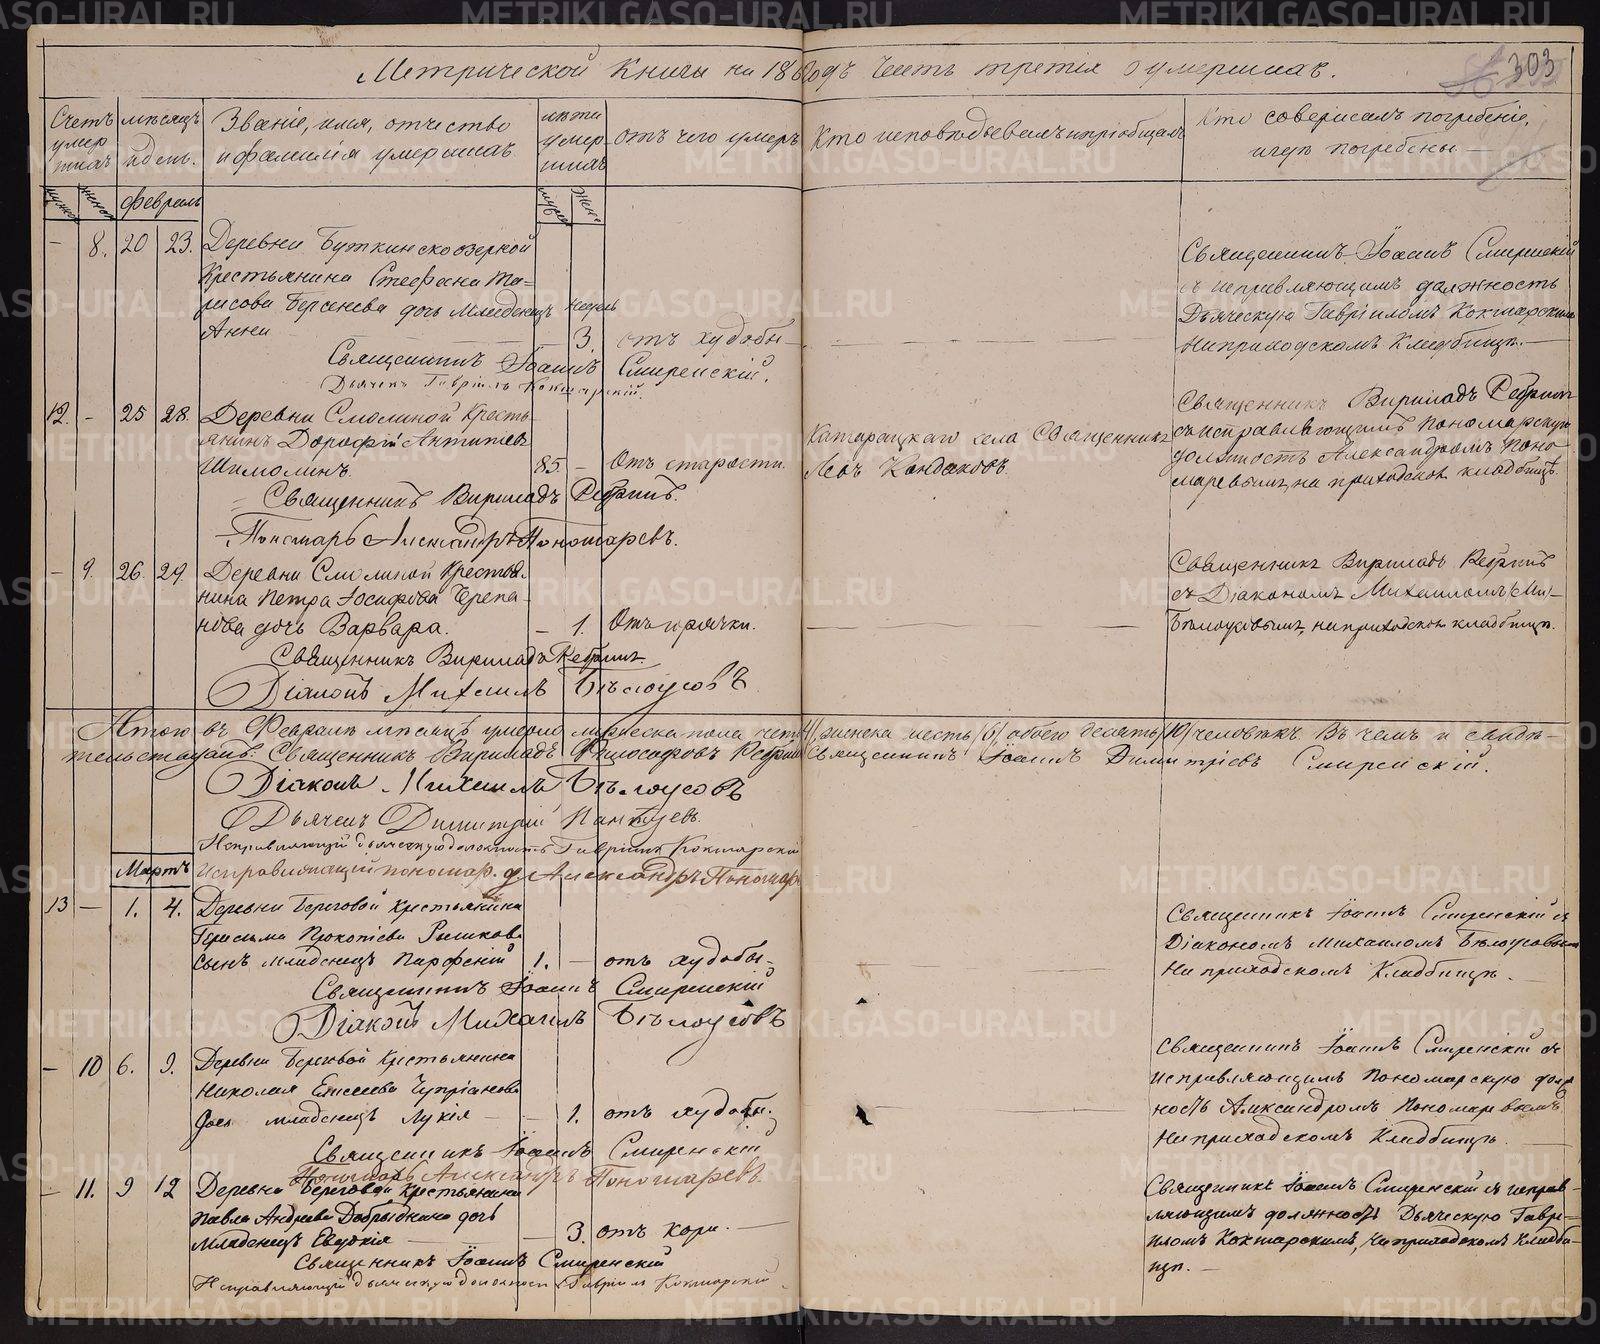 Метрической книги на 186 годъ часть третія о умершихъ.
303
Счетъ умершихъ
мѣсяцъ и день.
Званіе, имя, отчество и фамилія умершихъ
лѣта умершихъ
отъ чего умеръ
Кто исповѣдывалъ и пріобщалъ
Кто совершалъ погребеніе, и гдѣ погребены
Февраль
— 8. 20 23. Деревни Буткинскоозерной
Крестьянина Стефана
Берсенева дочь Младенецъ недель
Анна 3. отъ худобы
Священникъ Іоаннъ Смиренскій.
Дьячекъ Гавріилъ Кокшарскій.
Священникъ Іоаннъ Смиренскій
съ исправляющимъ должность
Дьяческую Гавріиломъ Кокшарскимъ
На приходскомъ Кладбищѣ.
12. — 25 28. Деревни Смолиной Кресть-
янинъ Дорофей Антипинъ
Шимолинъ. 85 — Отъ старости.
Священникъ
Пономарь Александръ Пономаревъ.
Катарацкаго села Священникъ
Левъ Кандаковъ
Священникъ
съ исправляющимъ пономарскую
должность Александромъ Поно-
маревымъ, на приходскомъ кладбищѣ.
— 9. 26. 29. Деревни Смолиной Крестья-
нина Петра Іосифова Черепа-
нова дочь Варвара. — 1. Отъ горячки.
Священникъ
Діаконъ Михаилъ Бѣлоусовъ
Священникъ
съ Діакономъ Михаиломъ
Бѣлоусовымъ, на приходскомъ кладбищѣ.
Итого въ Февралѣ мѣсяцѣ умерло мужеска пола четыре (4) женска шесть (6) обоего десять (10) человѣкъ. Въ чемъ и свидѣ-
тельствуемъ: Священникъ Философовъ Священникъ Іоаннъ Димитріевъ Смиренскій.
Діаконъ Михаилъ Бѣлоусовъ
Дьячекъ Димитрій
Исправляющій дьяческую должность Гавріилъ Кокшарскій
Мартъ
Исправляющій пономар. д. Александръ Пономар
13 — 1. 4. Деревни Береговой Крестьянина
Герасима Прокопіева
сынъ младенецъ Парфеній 1. — отъ худобы
Священникъ Іоаннъ Смиренскій
Діаконъ Михаилъ Бѣлоусовъ
Священникъ Іоаннъ Смиренскій съ
Діакономъ Михаиломъ Бѣлоусовымъ
На приходскомъ Кладбищѣ.
— 10 6. 9. Деревни Береговой Крестьянина
Николая Елисеева Чупріянова
дочь младенецъ Лукія — 1. отъ худобы.
Священникъ Іоаннъ Смиренскій
Пономарь Александръ Пономаревъ.
Священникъ Іоаннъ Смиренскій съ
исправляющимъ Пономарскую долж-
ность Александромъ Пономаревымъ
На приходскомъ Кладбищѣ.
— 11. 9 12 Деревни Береговой Крестьянина
Павла Андреева Добрыднина дочь
Младенецъ Евдокія — 3. отъ кори.
Священникъ Іоаннъ Смиренскій
Исправляющій дьяческую должность Гавріилъ Кокшарскій
Священникъ Іоаннъ Смиренскій съ исправ-
ляющимъ должность Дьяческую Гаврі-
иломъ Кокшарскимъ, На приходскомъ Кладби-
щѣ.
METRIKI.GASO-URAL.RU